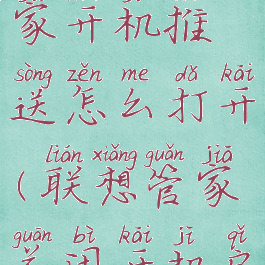 家开机推
sòng zěn me dǎ kāi
送怎么打开
lián xiǎng guǎn jiā
(联想管家
guān bì kāi jī qǐ
关闭开机启